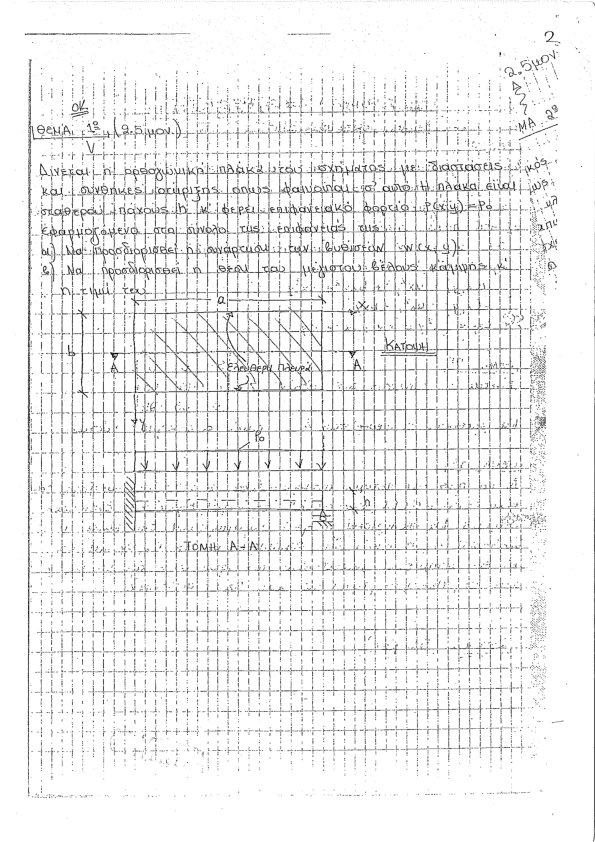 2
2.5 μον.
ΟΚ
ΘΕΜΑ 1º (2.5 μον.)
ΜΑ 2º
Δίνεται η ορθογωνική πλάκα του σχήματος με διαστάσεις
και συνθήκες στήριξης όπως φαίνονται σ' αυτό. Η πλάκα είναι
σταθερού πάχους h κ' φέρει επιφανειακό φορτίο P(x,y)=P₀
εφαρμοζόμενο στο σύνολο της επιφάνειάς της.
α) Να προσδιορισθεί η συνάρτηση των βυθίσεων w(x,y).
β) Να προσδιορισθεί η θέση του μέγιστου βέλους κάμψης κ'
η τιμή του
a
x
b
ΚΑΤΟΨΗ
A
A
Ελεύθερη Πλευρά
y
P₀
h
ΤΟΜΗ Α-Α